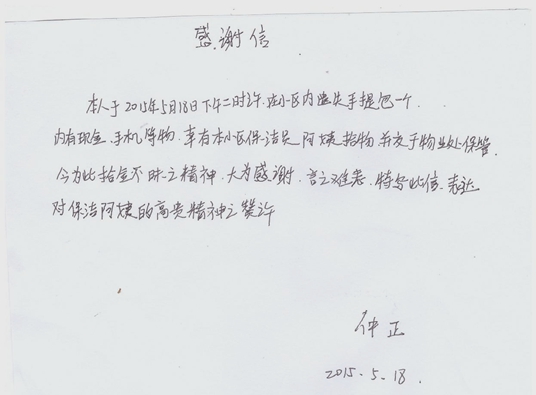 感谢信
本人于2015年5月18日下午二时许.在小区内遗失手提包一个.
内有现金.手机等物.幸有本小区保洁员阿姨拾物.并交于物业处保管.
今为此拾金不昧之精神.大为感谢.言之难表.特写此信.表达
对保洁阿姨的高贵精神之赞许
仲正
2015.5.18.